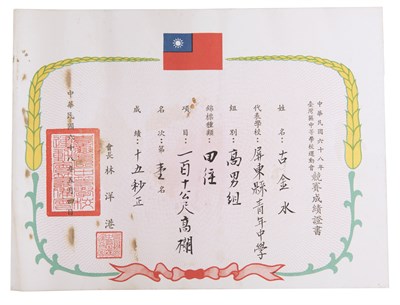 中華民國六十八年
臺灣區中等學校運動會
競賽成績證書
姓名：古金水
代表學校：屏東縣青年中學
組別：高男組
錦標種類：田徑
項目：一百十公尺高欄
名次：第壹名
成績：十五秒正
會長 林洋港